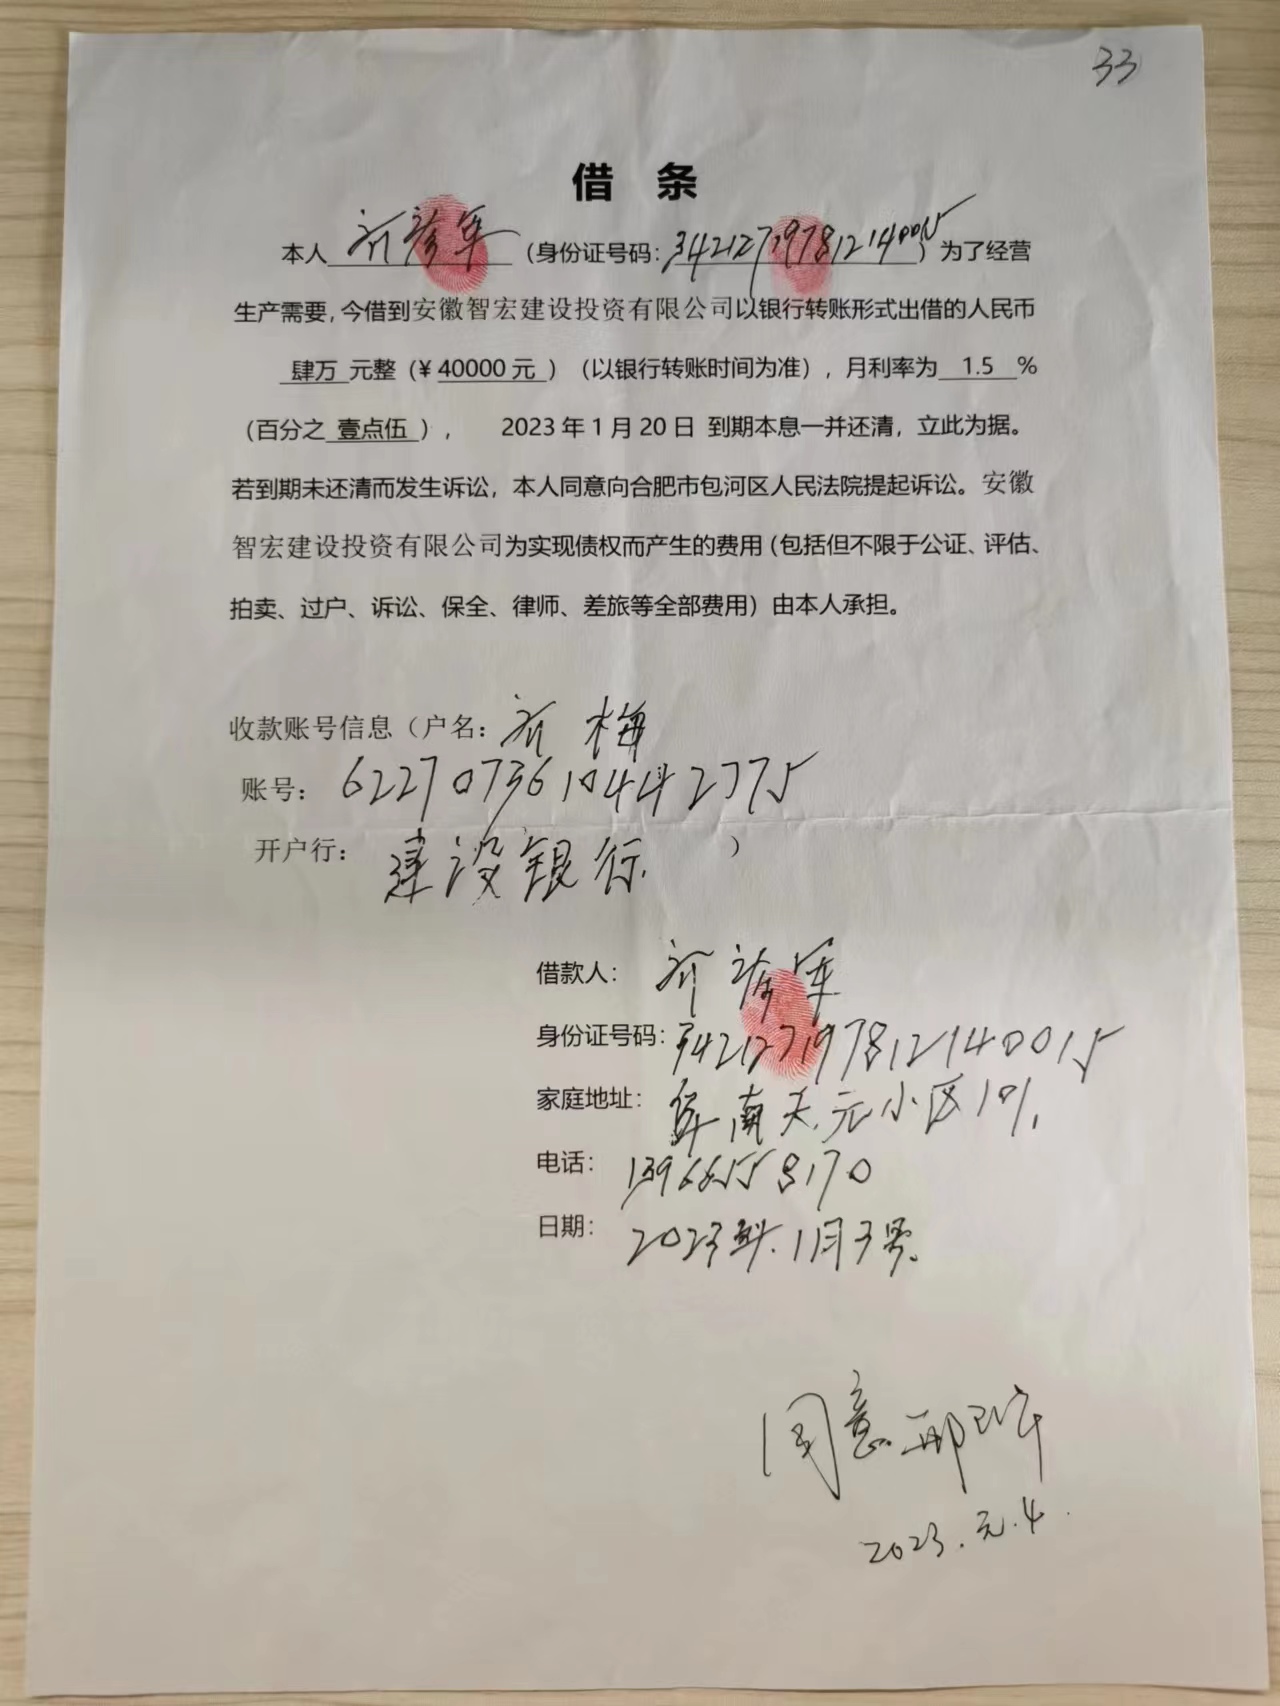 33
借 条
本人 齐 军 (身份证号码: 342127197812140015 ) 为了经营
生产需要, 今借到安徽智宏建设投资有限公司以银行转账形式出借的人民币
肆万 元整 (¥ 40000 元 ) (以银行转账时间为准), 月利率为 1.5 %
(百分之 壹点伍 ), 2023 年 1 月 20 日 到期本息一并还清, 立此为据。
若到期未还清而发生诉讼, 本人同意向合肥市包河区人民法院提起诉讼。安徽
智宏建设投资有限公司为实现债权而产生的费用 (包括但不限于公证、评估、
拍卖、过户、诉讼、保全、律师、差旅等全部费用) 由本人承担。
收款账号信息 (户名: 齐 梅
账号:
开户行: 建设银行 )
借款人: 齐 军
身份证号码: 342127197812140015
家庭地址: 阜南天元小区
电话:
日期: 2023年.1月3号.
同意 邢
2023.元.4.